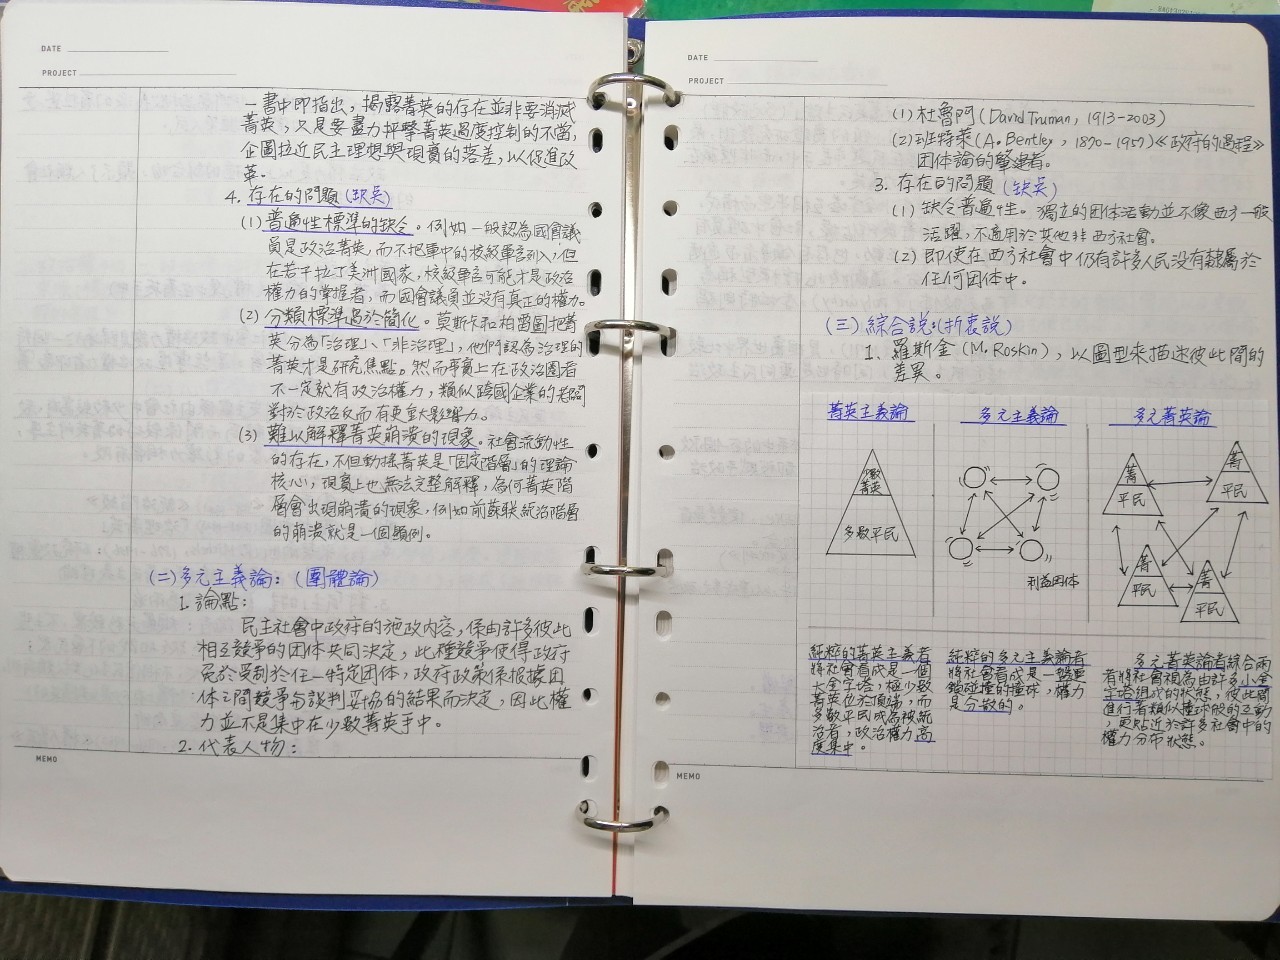 DATE
PROJECT
一書中即指出，揭露菁英的存在並非要消滅
菁英，只是要盡力抨擊菁英過度控制的不當，
企圖拉近民主理想與現實的落差，以促進改
革。
4. 存在的問題(缺失)
(1) 普遍性標準的缺乏。例如一般認為國會議
員是政治菁英，而不把軍中的校級軍官列入，但
在若干拉丁美洲國家，校級軍官可能才是政治
權力的掌握者，而國會議員並沒有真正的權力。
(2) 分類標準過於簡化。莫斯卡和柏雷圖把菁
英分為「治理」、「非治理」，他們認為治理的
菁英才是研究焦點。然而事實上在政治圈者
不一定就有政治權力，類似跨國企業的老闆
對於政治反而有更重大影響力。
(3) 難以解釋菁英崩潰的現象。社會流動性
的存在，不但動搖菁英是「固定階層」的理論
核心，現實上也無法完整解釋，為何菁英階
層會出現崩潰的現象，例如前蘇聯統治階層
的崩潰就是一個顯例。
(二)多元主義論：(團體論)
1. 論點：
民主社會中政府的施政內容，係由許多彼此
相互競爭的团体共同決定，此種競爭使得政府
免於受制於任一特定团体，政府政策係根據团
体之間競爭與談判妥協的結果而決定，因此權
力並不是集中在少數菁英手中。
2. 代表人物：
MEMO
DATE
PROJECT
(1) 杜魯門 (David Truman, 1913-2003)
(2) 班特萊 (A. Bentley, 1870-1957)《政府的過程》
团体論的奠建者。
3. 存在的問題(缺失)
(1) 缺乏普遍性。獨立的团体活動並不像西方一般
活躍，不適用於其他非西方社會。
(2) 即使在西方社會中仍有許多人民没有隸屬於
任何团体中。
(三) 綜合說：(折衷說)
1. 羅斯金 (M. Roskin)，以圖型來描述彼此間的
差異。
菁英主義論 多元主義論 多元菁英論
少數
菁英
多數平民
利益团体
菁
平民
菁
平民
菁
平民
菁
平民
純粹的菁英主義者
將社會看成是一個
大金字塔，極少數
菁英位於頂端，而
多數平民成為被統
治者，政治權力高
度集中。
純粹的多元主義論者
將社會看成是一盤連
鎖碰撞的撞球，權力
是分散的。
多元菁英論者綜合兩
者將社會視為由許多小金
字塔組成的狀態，彼此間
進行著類似撞球般的互動
，更貼近於許多社會中的
權力分布狀態。
MEMO